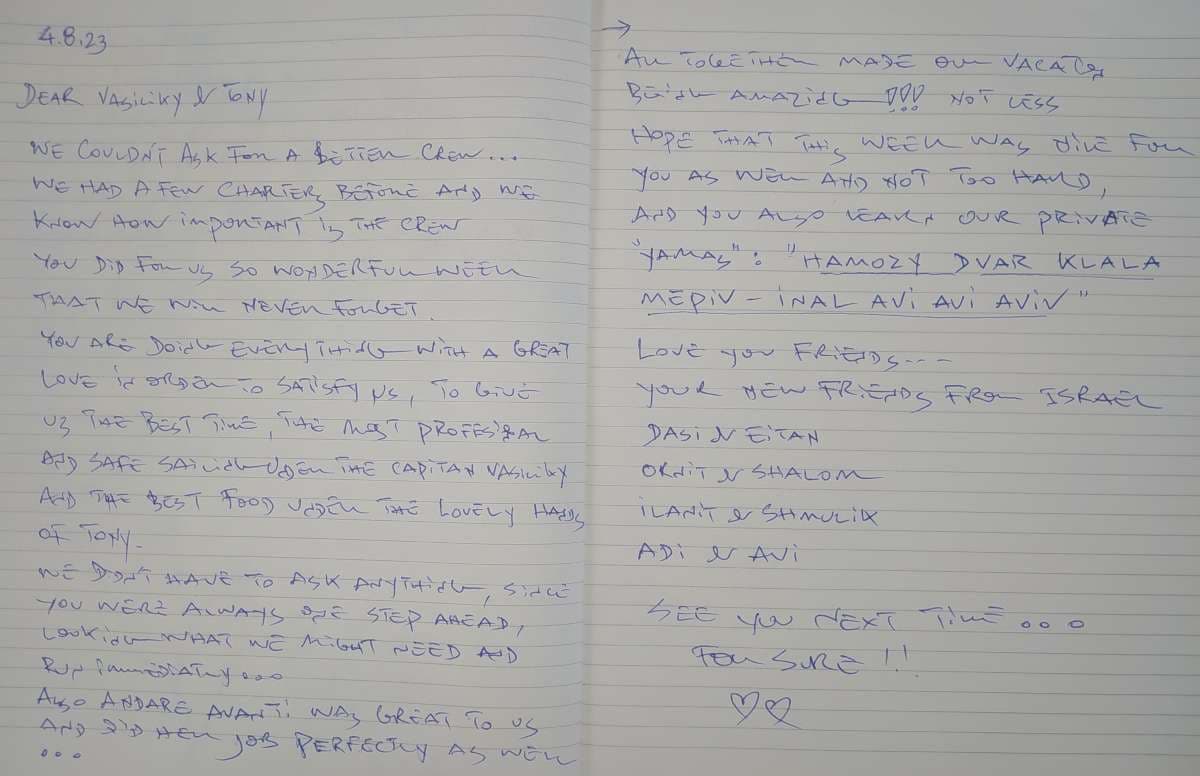 4.8.23
DEAR VASILIKY & TONY
WE COULDN'T ASK FOR A BETTER CREW...
WE HAD A FEW CHARTERS BEFORE AND WE
KNOW HOW IMPORTANT IS THE CREW
YOU DID FOR US SO WONDERFUL WEEK
THAT WE WILL NEVER FORGET.
YOU ARE DOING EVERYTHING WITH A GREAT
LOVE IN ORDER TO SATISFY US, TO GIVE
US THE BEST TIME, THE MOST PROFESINAL
AND SAFE SAILING UNDER THE CAPITAN VASILIKY
AND THE BEST FOOD UNDER THE LOVELY HANDS
OF TONY.
WE DON'T HAVE TO ASK ANYTHING, SINCE
YOU WERE ALWAYS ONE STEP AHEAD,
LOOKING WHAT WE MIGHT NEED AND
RUN IMMEDIATLY...
ALSO ANDARE AVANTI WAS GREAT TO US
AND DID HER JOB PERFECTLY AS WELL
...
→
ALL TOGETHER MADE OUR VACATION
BEING AMAZING!!! NOT LESS
HOPE THAT THIS WEEK WAS NICE FOR
YOU AS WELL AND NOT TOO HARD,
AND YOU ALSO LEARN OUR PRIVATE
"YAMAS": "HAMOZY DVAR KLALA
MEPIV - INAL AVI AVI AVIV"
LOVE YOU FRIENDS---
YOUR NEW FRIENDS FROM ISRAEL
DASI & EITAN
ORNIT & SHALOM
ILANIT & SHMULIK
ADI & AVI
SEE YOU NEXT TIME...
FOR SURE!!
♡♡